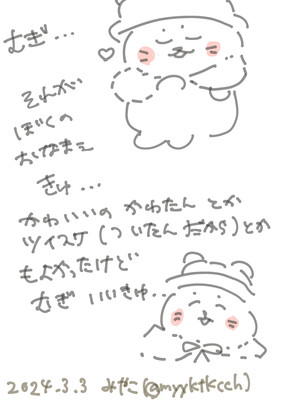 むぎ...
それが
ぼくの
おなまえ
きゅ...
かわいいの かわたん とか
ツイスケ(ついたんだから)とか
もよかったけど
むぎ いいきゅ...
2024.3.3 みやこ(@myyktkcch)